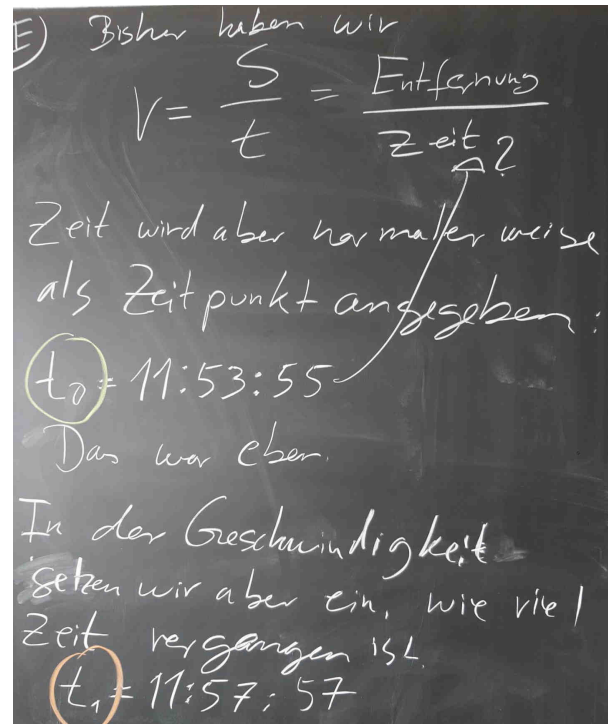 E) Bisher haben wir
V = S/t = Entfernung/Zeit?
Zeit wird aber normallerweise
als Zeitpunkt angegeben:
t₀ = 11:53:55
Das war eben.
In der Geschwindigkeit
setzen wir aber ein, wie viel
Zeit vergangen ist.
t₁ = 11:57:57